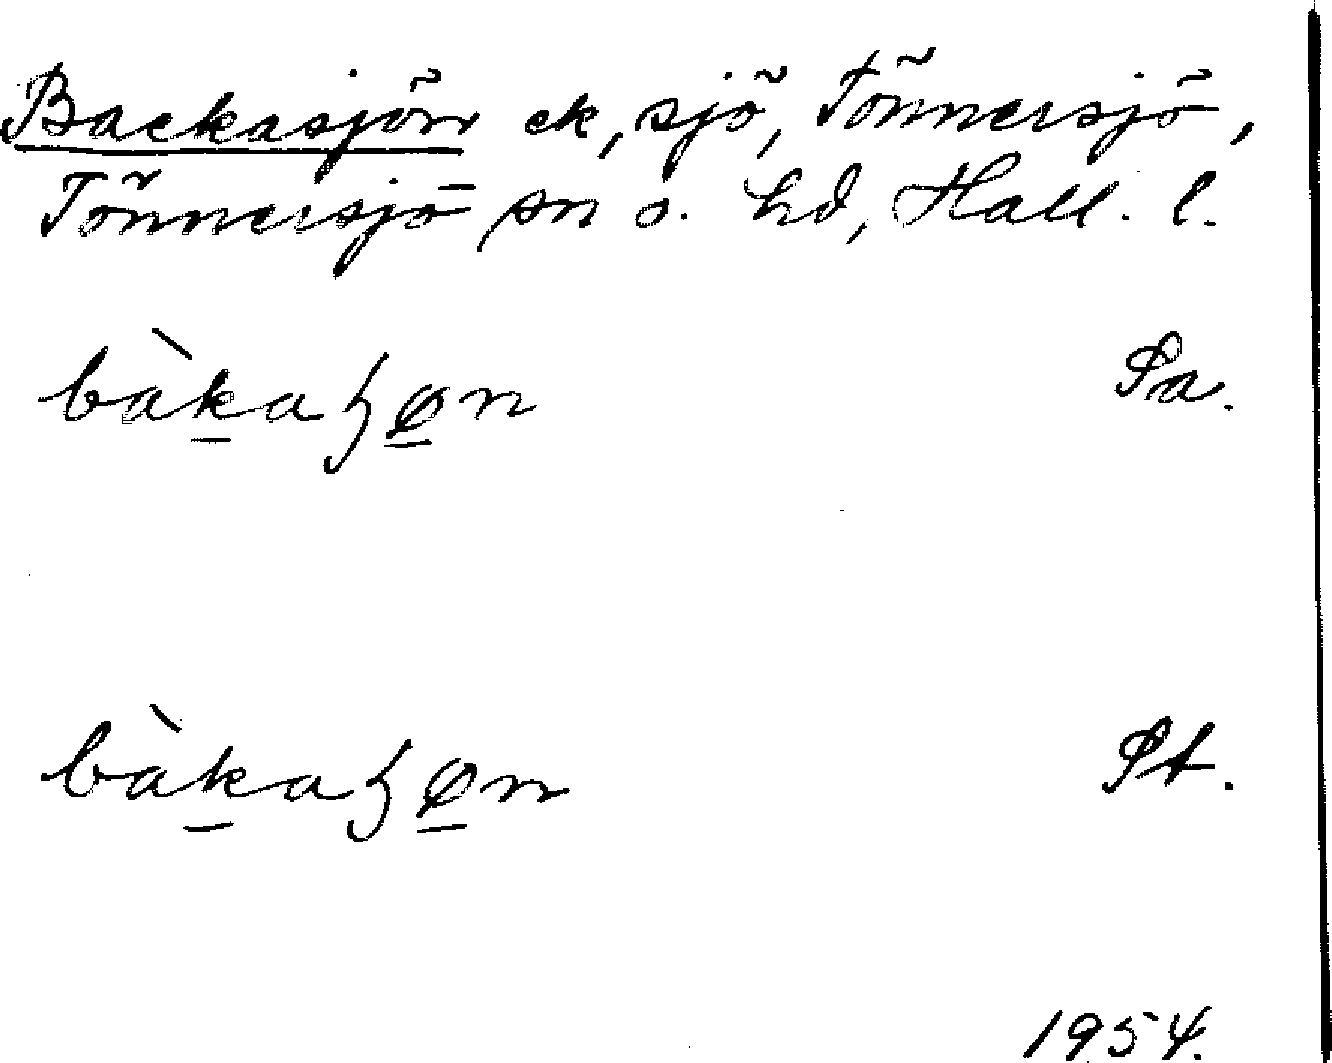 Backasjön ek, sjö, Tönnersjö,
Tönnersjö sn o. hd, Hall. l.
bàkaɧøn Pa.
bàkaɧøn Pt.
1954.